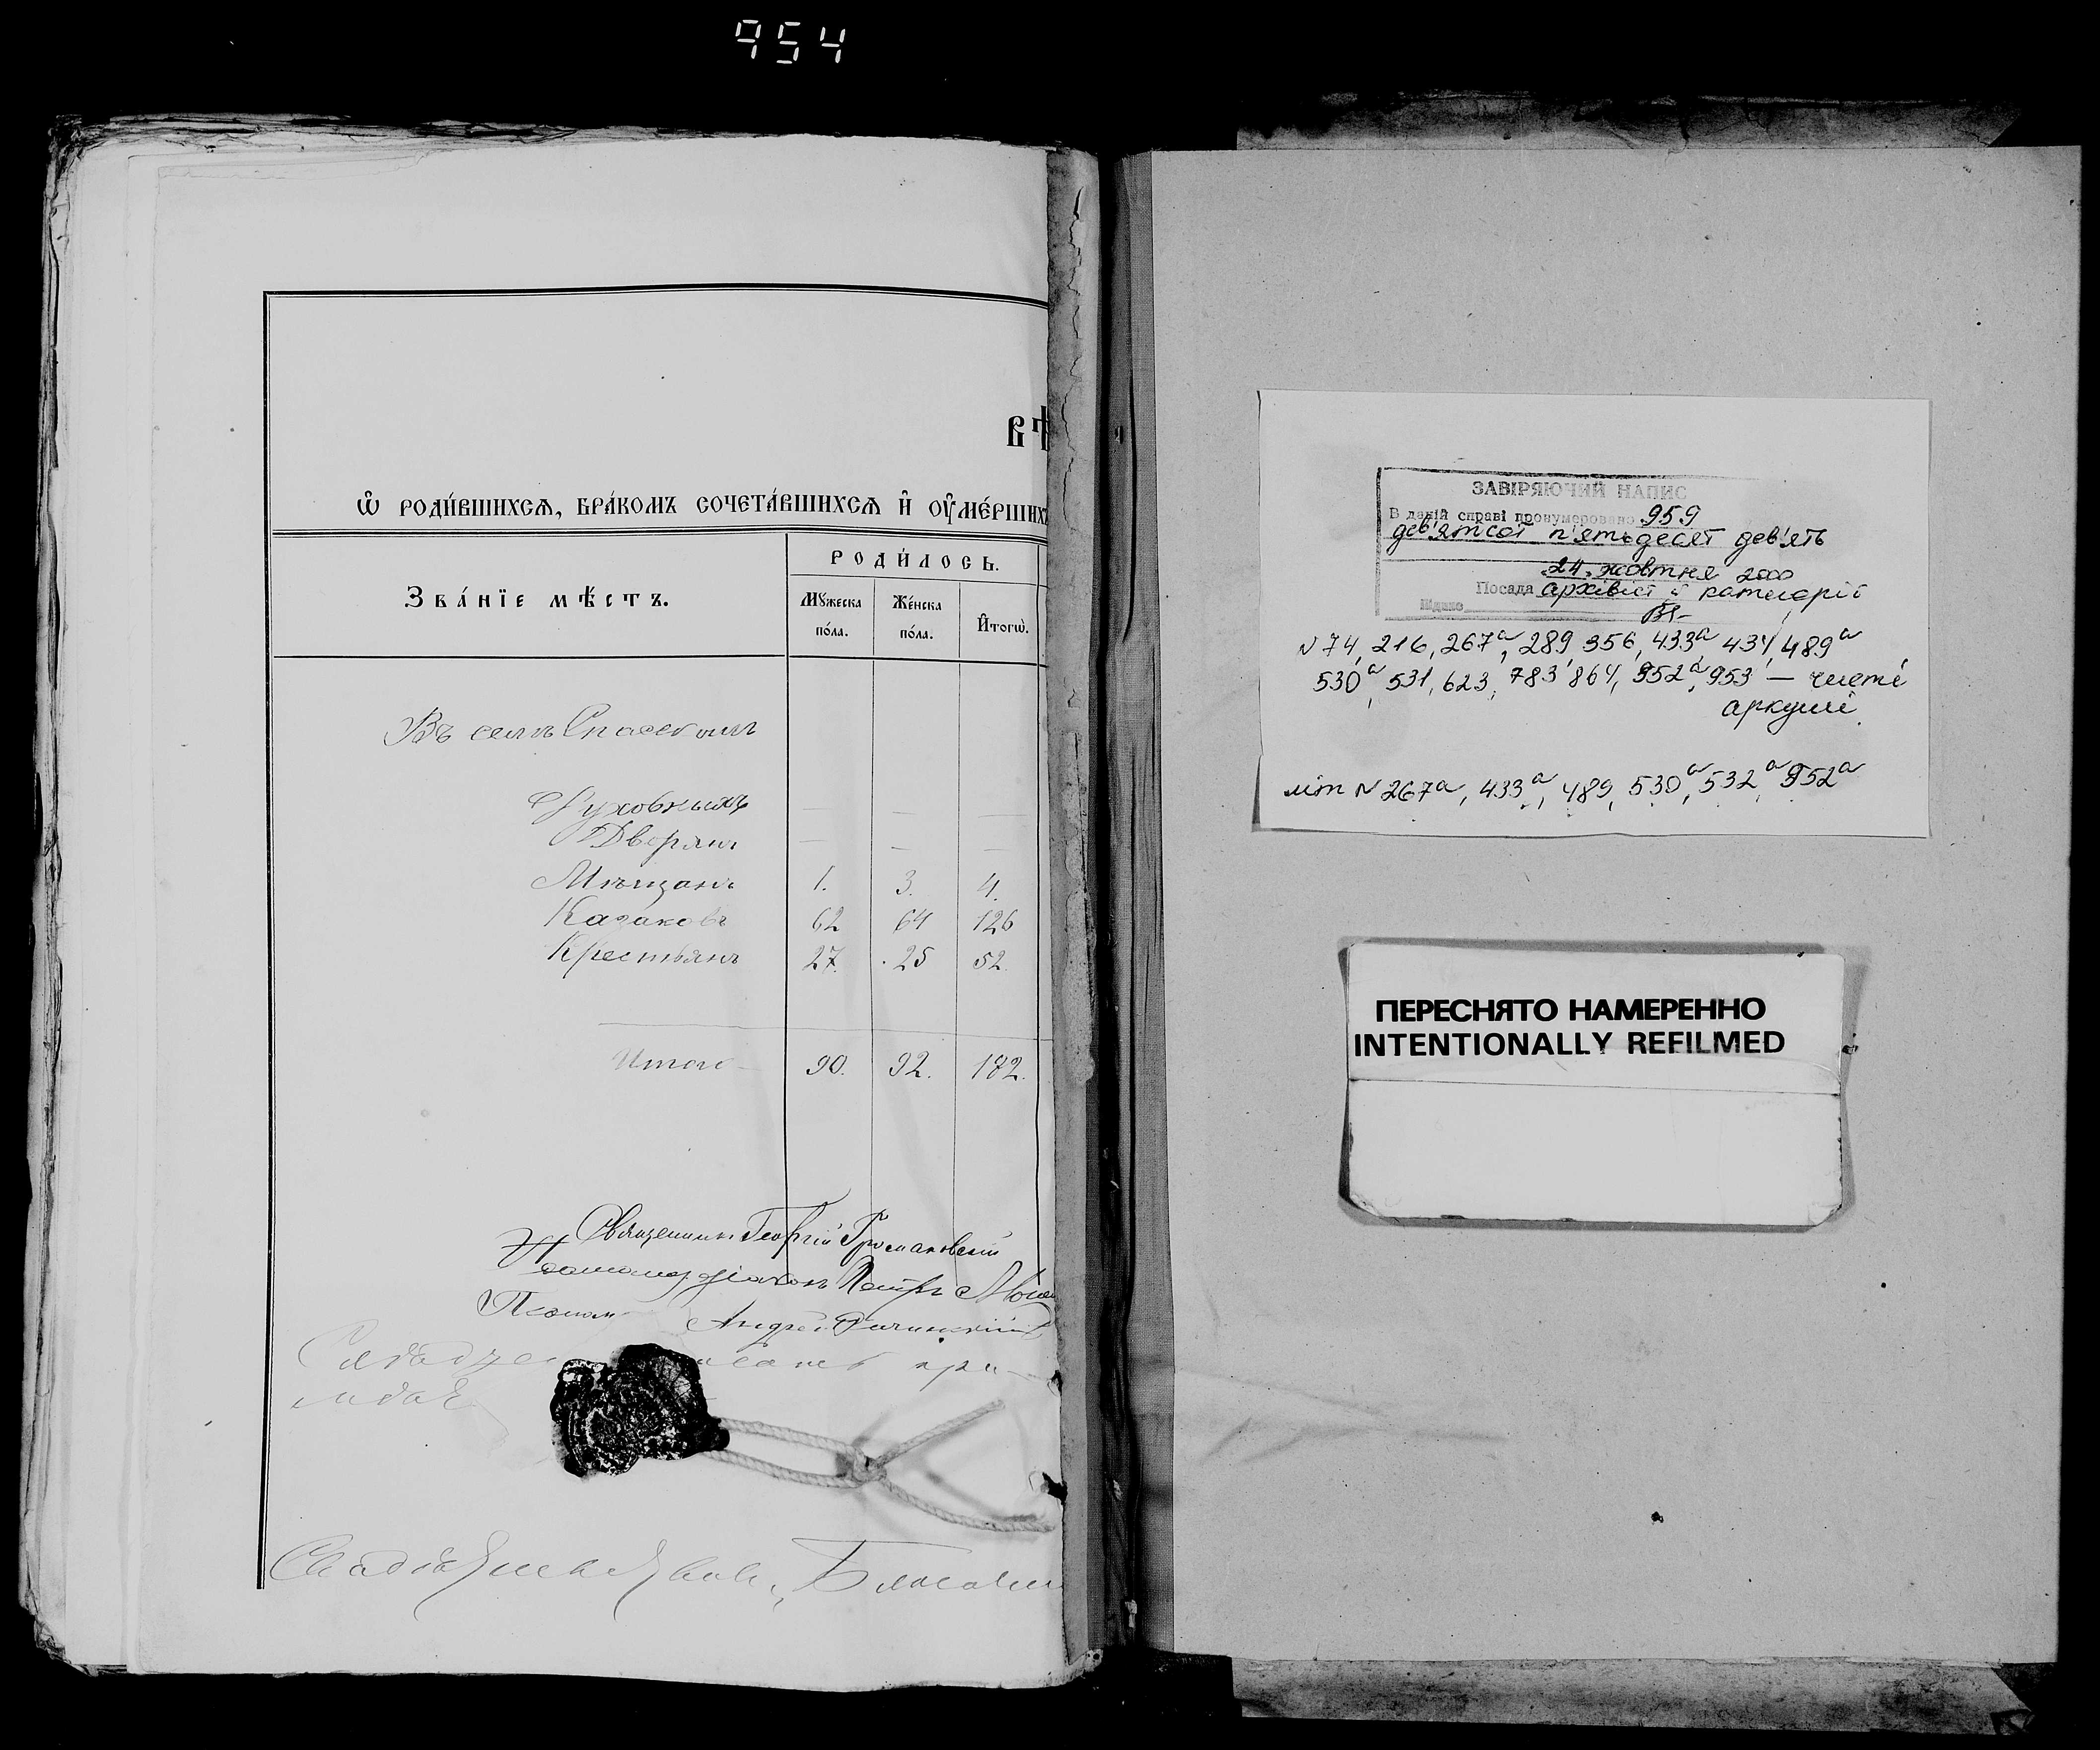 954
ВѢ
Ѡ҆ РОДИ́ВШИХСѦ, БРА́КОМЪ СОЧЕТА́ВШИХСѦ И҆ ОУ҆МЕ́РШИХЪ
ЗВА́НЇЕ МѢ́СТЪ.
РОДИ́ЛОСЬ.
МꙊжеска по́ла.
Же́нска по́ла.
И҆тогѡ̀.
Въ селѣ Спасскомъ
Духовныхъ — — —
Дворянъ — — —
Мѣщанъ 1. 3. 4.
Казаковъ 62 64 126
Крестьянъ 27. 25 52.
Итого 90. 92. 182.
Священникъ Георгій Громаковскій
діаконъ Петръ
Псалом Андрей
ЗАВІРЯЮЧИЙ НАПИС
В даній справі пронумеровано 959
дев'ятсот п'ятьдесят дев'ять
24 жовтня 2000
Посада архівіст II категорії
Підпис
N 74, 216, 267а, 289, 356, 433а, 434, 489а
530а, 531, 623, 783, 864, 952а, 953 — чисті
аркуші
літ N 267а, 433а, 489, 530а, 532а, 952а
ПЕРЕСНЯТО НАМЕРЕННО
INTENTIONALLY REFILMED